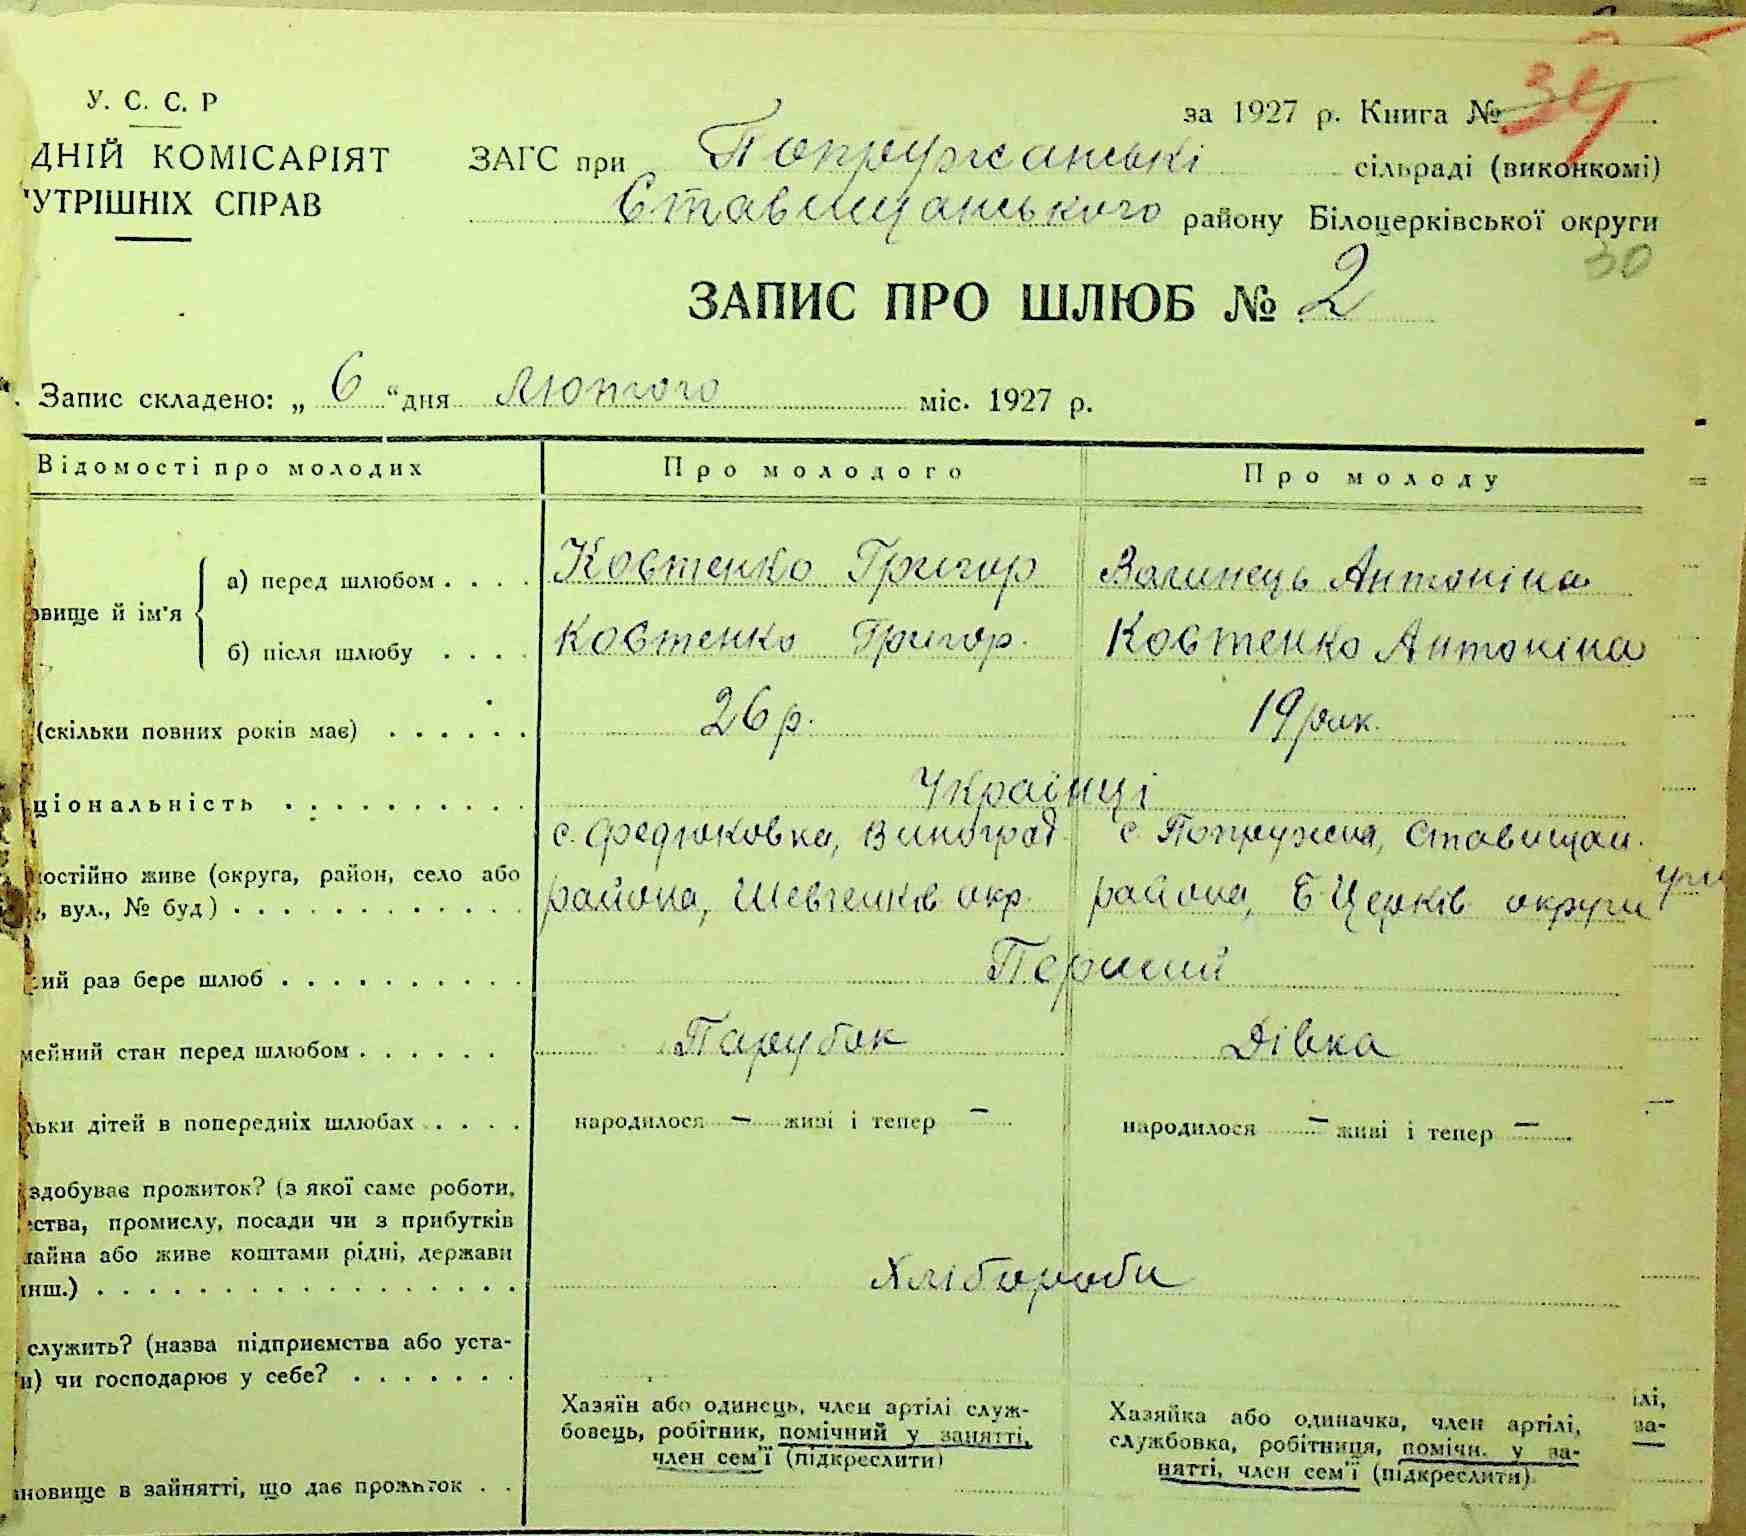 У. С. С. Р
за 1927 р. Книга № 34
ДНІЙ КОМІСАРІЯТ
ЗАГС при Попружанські сільраді (виконкомі)
УТРІШНІХ СПРАВ
Ставищанського району Білоцерківської округи
30
ЗАПИС ПРО ШЛЮБ № 2
Запис складено: „ 6 “ дня Лютого міс. 1927 р.
Відомості про молодих Про молодого Про молоду
а) перед шлюбом . . . . Костенко Григор Залинець Антоніна
звище й ім'я
б) після шлюбу . . . . Костенко Григор. Костенко Антоніна
(скільки повних років має) . . . . . . 26 р. 19 рок.
ціональність . . . . . . . . . . Українці
с. Федюковка, Виноград. с. Попружна, Ставищан.
постійно живе (округа, район, село або
района, Шевченків окр. района, Б-Церків округи
, вул., № буд) . . . . . . . . . . . .
ий раз бере шлюб . . . . . . . . . . Перший
мейний стан перед шлюбом . . . . . . Парубок Дівка
льки дітей в попередніх шлюбах . . . . народилося — живі і тепер — народилося — живі і тепер —
здобуває прожиток? (з якої саме роботи,
ства, промислу, посади чи з прибутків
майна або живе коштами рідні, держави
інш.) . . . . . . . . . . . . . . . . Хлібороби
служить? (назва підприємства або уста-
и) чи господарює у себе? . . . . . . .
Хазяїн або одинець, член артілі служ-
бовець, робітник, помічний у занятті,
член сем'ї (підкреслити)
Хазяйка або одиначка, член артілі,
службовка, робітниця, помічн. у за-
нятті, член сем'ї (підкреслити).
ілі,
за-
ановище в зайнятті, що дає прожиток . .